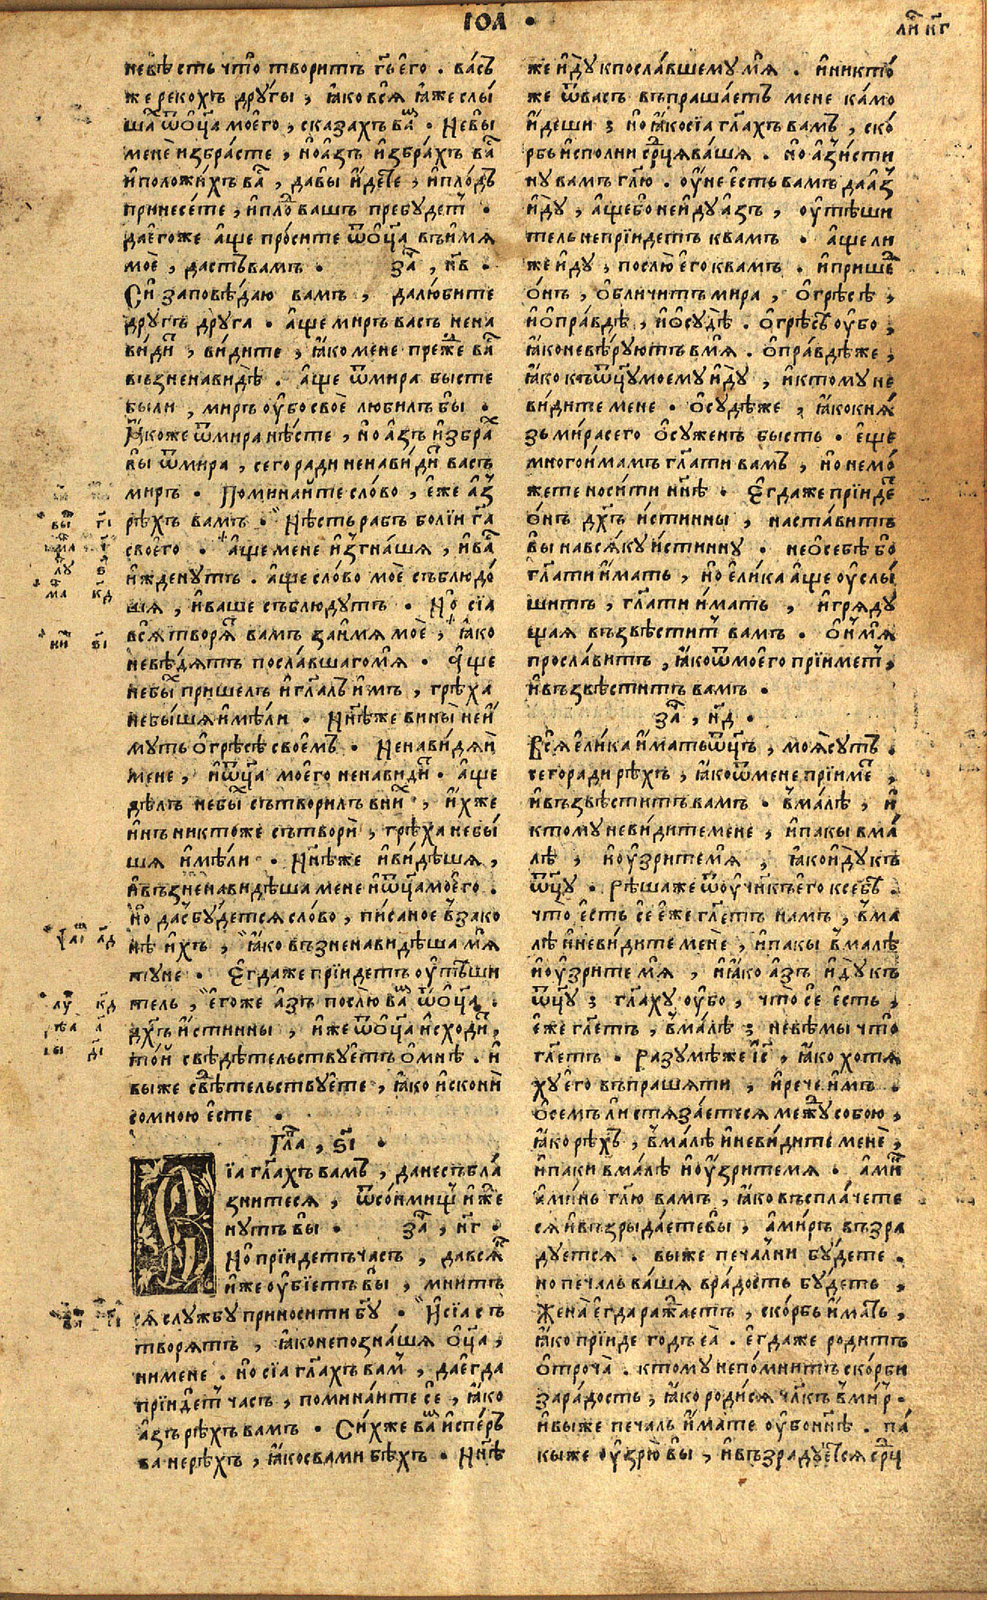 ІОА҆ •
ли҇ к҃г
невѣ́сть что̀ твори́тъ гь҃ є҆го̀ . ва́съ
же рекохъ дрꙋ́гы , ꙗ҆ко всѧ̀ ꙗ҆же слы́
шаⷯ ѿ ѻ҆ц҃а мое҆го̀ , сказахъ ваⷨ . Не вы̀
менѐ избра́сте , но а҆зъ и҆збра́хъ ваⷭ
и҆ положи́хъ ваⷭ , да вы̀ и҆́дете , и҆ пло́дъ
принесе́те , и҆ плоⷣ вашъ пребꙋ́детъ .
да є҆гоже а҆ще про́сите ѿ ѻ҆ц҃а въ и҆́мѧ
моѐ , дастъ вамъ . заⷱ , н҃в .
Сѝ заповѣ́даю вамъ , да лю́бите
дрꙋгъ дрꙋга . а҆́ще миръ васъ нена
ви́диⷮ , ви́дите , ꙗ҆́ко мене преⷤе ваⷭ
възненавидѣ̀ . а҆́ще ѿ мира бысте
были , миръ ᲂу҆́бо своѐ любилъ бы̀ .
Ꙗ҆́коже ѿ мира нѣ́сте , но а҆зъ и҆збраⷯ
вы̀ ѿ мира , сего ради ненави́диⷮ васъ
миръ . Поминайте сло́во , є҆́же а҆́зъ
рѣ́хъ вамъ . Нѣ́сть рабъ болїи гⷭ҇а
своего . а҆́ще мене и҆згна́шѧ , и҆ ваⷭ
и҆жденꙋтъ . а҆́ще сло́во моѐ съблюдо́
шѧ , и҆ ваше съблюдꙋтъ . Но̀ сїа
всѧ̀ творѧ́ⷮ вамъ за и҆́мѧ моѐ , ꙗ҆́ко
невѣ́дѧтъ посла́вшаго мѧ̀ . А҆́ще
не быⷯ пришелъ и҆ гл҃алъ и҆мъ , грѣ́ха
не бы́шѧ и҆мѣ́ли . Нн҃ѣ же вины̀ не и҆́
мꙋть ѻ҆ грѣсѣ̀ своемъ . Ненави́дѧй
мене , и҆ ѻ҆ц҃а мое҆го ненавидиⷮ . а҆́ще
дѣ́лъ не быⷯ сътворилъ в ниⷯ , и҆́хже
и҆́нъ никтоже сътворѝ , грѣ́ха не бы́
шѧ и҆мѣ́ли . Нн҃ѣ же и҆ ви́дѣша ,
и҆ възненави́дѣша мене и҆ ѻ҆ц҃а мое҆го .
но да сбꙋ́детсѧ сло́во , пи́саное в зако
нѣ и҆́хъ , ꙗ҆́ко възненави́дѣша мѧ̀
тꙋне . Є҆гда же прїи́детъ ᲂу҆тѣ́ши
тель , є҆гоже а҆зъ послю̀ ваⷨ ѿ ѻ҆ц҃а .
дх҃ъ и҆́стинны , и҆́же ѿ ѻ҆ц҃а и҆схо́диⷮ ,
то́й свѣдѣ́тельствꙋетъ ѻ҆ мнѣ . и҆
вы же свѣдѣ́тельствꙋете , ꙗ҆́ко и҆скони
со мною є҆сте .
Глⷡ҇а , ѕ҃і .
Сїа гл҃ахъ вамъ , да не събла́
знитесѧ , ѿ со́нмищъ и҆жⷣе
нꙋтъ вы̀ . заⷱ , н҃г .
Но̀ прїи́детъ часъ , да всѧⷦ
и҆́же ᲂу҆бїетъ вы̀ , мнитъ
сѧ слꙋ́жбꙋ приноси́ти бг҃ꙋ . И҆ сїа съ
творѧ́тъ , ꙗ҆́ко не позна́шѧ ѻ҆ц҃а ,
ни мене . но сїа гл҃ахъ вамъ , да є҆гда
прїи́детъ часъ , помина́ите сѐ , ꙗ҆́ко
а҆́зъ рѣ́хъ вамъ . Си́хже ваⷨ и҆спе́ръ
ва не рѣ́хъ , ꙗ҆́ко с вами бѣ́хъ . Нн҃ѣ
же и҆дꙋ к посла́вшемꙋ мѧ̀ . и҆ никто́
же ѿ васъ въпраша́етъ мене ка́мо
и҆́деши ; но ꙗ҆́ко сїа гл҃ахъ вамъ , ско́
рбь и҆сполни срⷣца ва́шѧ . но а҆́зъ и҆́сти
нꙋ вамъ гл҃ю . ᲂу҆́не є҆́сть вамъ да а҆́зъ
и҆дꙋ̀ , а҆́ще бо не и҆дꙋ̀ а҆́зъ , ᲂу҆тѣши
тель не прїи́детъ к вамъ . а҆́ще ли
же и҆дꙋ , послю̀ є҆го к вамъ . и҆ пришеⷣ
ѻ҆нъ , ѻ҆бличи́тъ мира , ѻ҆ грѣсѣ̀ ,
и҆ ѻ҆ пра́вдѣ , и҆ ѻ҆ сꙋдѣ̀ . ѻ҆ грѣсѣ́ ᲂу҆бо ,
ꙗ҆́ко не вѣ́рꙋютъ в мѧ̀ . ѻ҆ пра́вдѣ же ,
ꙗ҆́ко къ ѻ҆ц҃ꙋ моемꙋ и҆дꙋ , и҆ ктомꙋ не
ви́дите мене . ѻ҆ сꙋдѣ же , ꙗ҆́ко кнѧ́
зь ми́ра сего ѻ҆сꙋженъ бысть . є҆ще
много и҆мамъ гл҃ати вамъ , но не мо́
жете носи́ти нн҃ѣ . Є҆гда же прїи́деⷮ
ѻ҆́нъ дх҃ъ и҆́стинны , наста́витъ
вы на всѧ́кꙋ и҆́стиннꙋ . не ѻ҆ себѣ бо
гл҃ати и҆́мать , но є҆ли́ка а҆́ще ᲂу҆слы́
шитъ , гл҃ати и҆́мать , и҆ грѧдꙋ
щаѧ възвѣсти́тъ вамъ . ѻ҆́н мѧ̀
прославитъ , ꙗ҆́ко ѿ мое҆го прїи́метъ ,
и҆ възвѣститъ вамъ .
заⷱ , н҃д .
Всѧ̀ є҆ли́ка и҆́мать ѻ҆ц҃ъ , моѧ̀ сꙋть .
сего ради рѣ́хъ , ꙗ҆́ко ѿ мене прїи́меⷮ ,
и҆ възвѣститъ вамъ . в ма́лѣ , и҆
ктомꙋ не ви́дите мене , и҆ пакы в ма́
лѣ , и҆ ᲂу҆́зрите мѧ̀ , ꙗ҆́ко и҆дꙋ̀ къ
ѻ҆ц҃ꙋ . Рѣша же ѿ ᲂу҆чн҃къ є҆го к себѣ .
что̀ є҆́сть сѐ є҆́же гл҃етъ намъ , в ма́
лѣ и҆ не ви́дите менѐ , и҆ пакы в ма́лѣ
и҆ ᲂу҆́зрите мѧ̀ , и҆ ꙗ҆́ко а҆зъ и҆дꙋ̀ къ
ѻ҆ц҃ꙋ ; гл҃ахꙋ ᲂу҆бо , что̀ сѐ є҆́сть ,
є҆́же гл҃етъ , в ма́лѣ ; не вѣ́мы что̀
гл҃етъ . Разꙋмѣ́ же і҆с҃ , ꙗ҆́ко хотѧ
хꙋ є҆го въпрашати , и҆ рече и҆мъ .
ѻ҆ семъ ли стѧза́етесѧ межⷣꙋ собою ,
ꙗ҆́ко рѣ́хъ , в ма́лѣ и҆ не ви́дите менѐ ,
и҆ паки в ма́лѣ и҆ ᲂу҆́зрите мѧ . а҆ми́нь
а҆ми́нь гл҃ю вамъ , ꙗ҆́ко въспла́чете
сѧ и҆ възрыда́ете вы̀ , а҆ миръ възра
дꙋетсѧ . вы же печа́лни бꙋ́дете .
но печаль ва́шѧ в ра́дость бꙋ́деть ,
Жена̀ є҆гда ражⷣаетъ , ско́рбь и҆́мать ,
ꙗ҆́ко прїи́де годъ є҆ѧ̀ . є҆гда же родитъ
ѻ҆троча̀ . ктомꙋ не по́мнитъ ско́рби
за ра́дость , ꙗ҆́ко роди́сѧ чл҃къ в миръ .
и҆ вы же печаль и҆́мате ᲂу҆бо нн҃ѣ . па́
кы же ᲂу҆зрю̀ вы̀ , и҆ възрадꙋ́етсѧ срⷣце